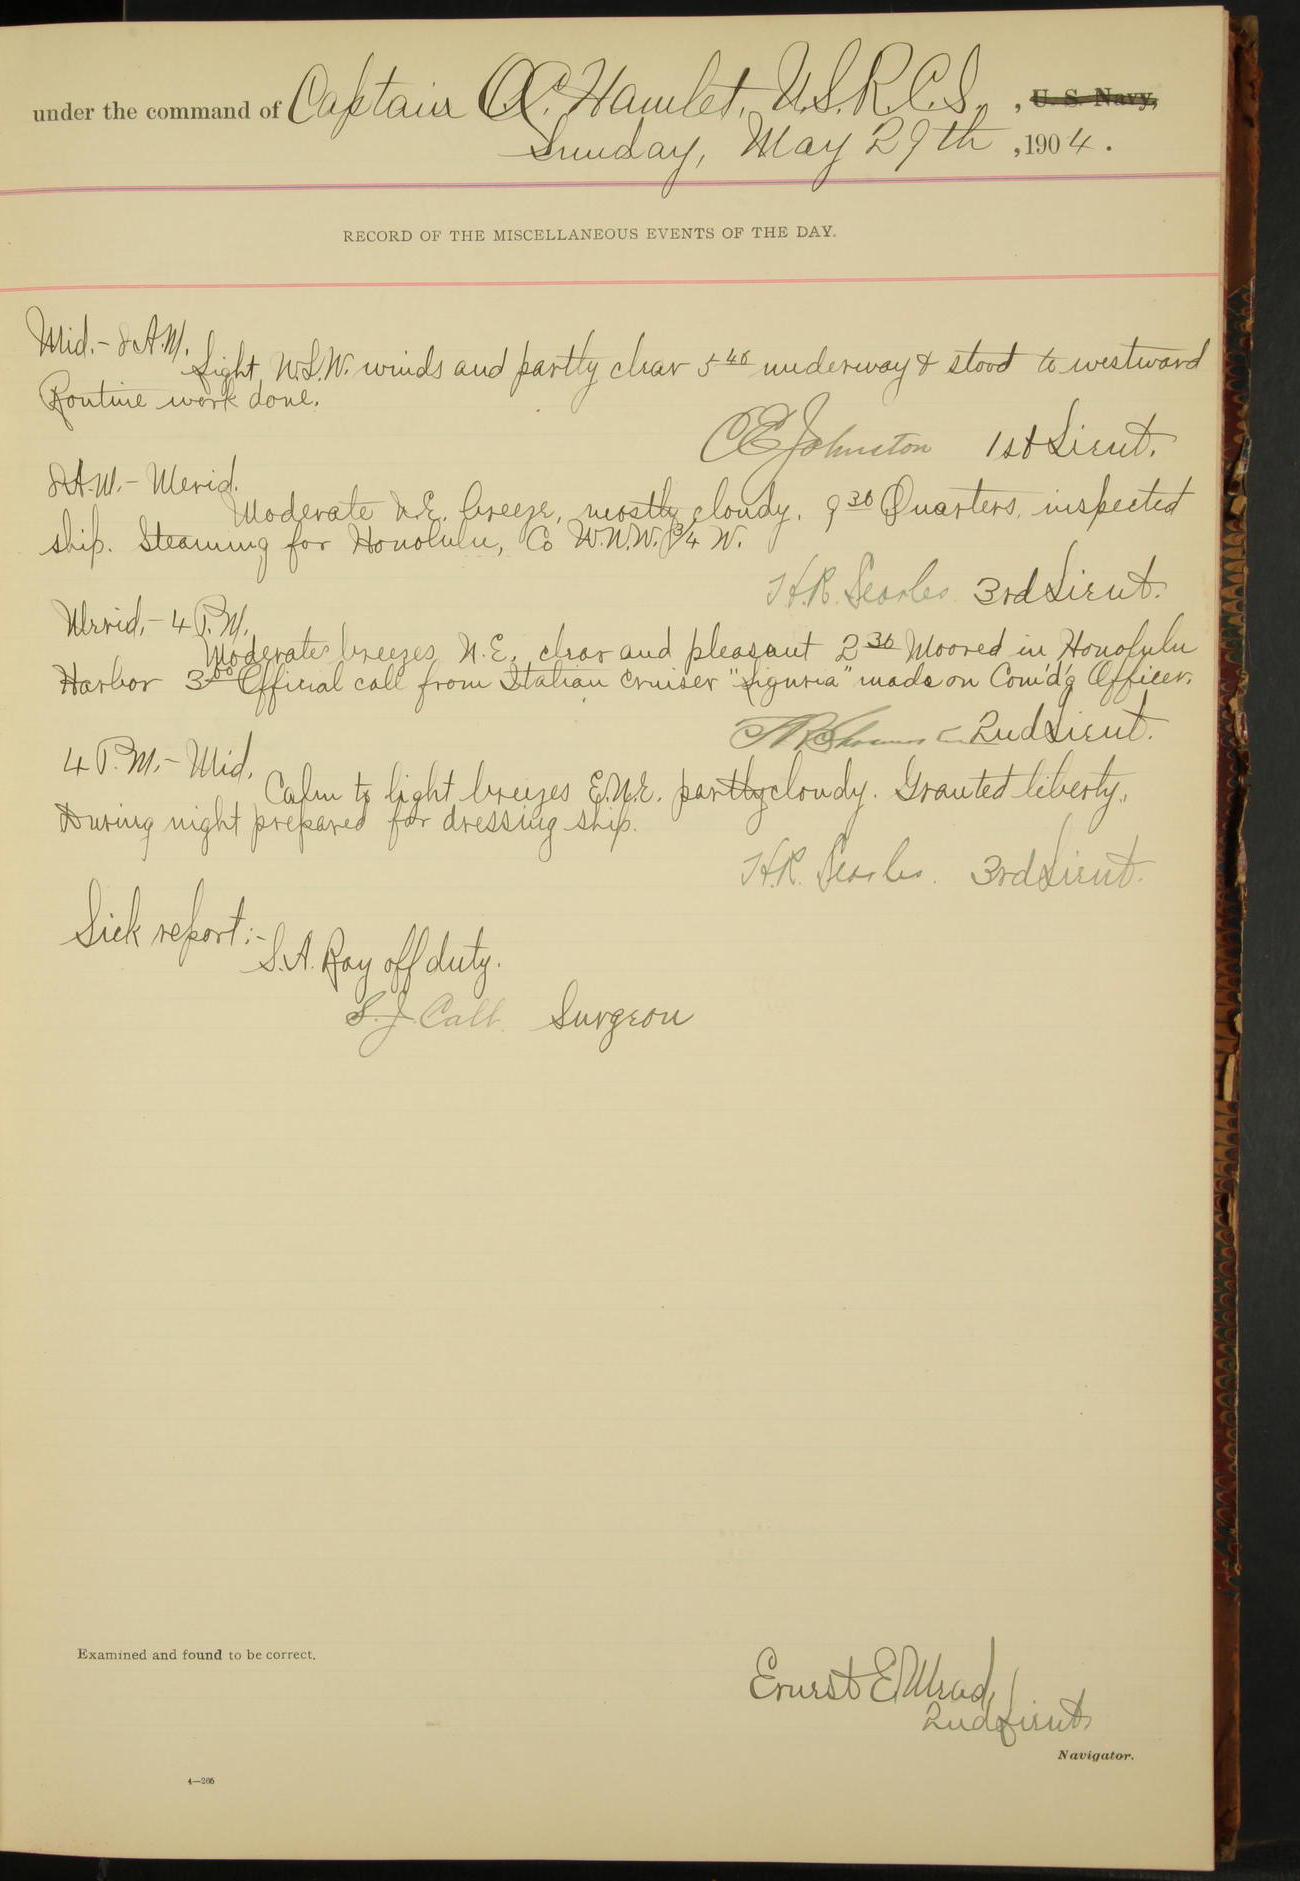 under the command of Captain O.C. Hamlet, U.S.R.C.S., U. S. Navy,
Sunday, May 29th, 1904.
RECORD OF THE MISCELLANEOUS EVENTS OF THE DAY.
Mid.- 8 A.M.
Light W.S.W. winds and partly clear 5 40 underway & stood to westward
Routine work done.
C E Johnston 1st Lieut.
8 A.M.- Merid.
Moderate N.E. breeze, mostly cloudy. 9 30 Quarters, inspected
ship. Steaming for Honolulu, Co W.N.W. 3/4 W.
H.R. Searles 3rd Lieut.
Merid.- 4 P.M.
Moderate breezes N.E. clear and pleasant 2 30 Moored in Honolulu
Harbor 3 00 Official call from Italian cruiser "Liguria" made on Com'd'g Officer.
2nd Lieut.
4 P.M.- Mid.
Calm to light breezes E.N.E. partly cloudy. Granted liberty.
During night prepared for dressing ship.
H.R. Searles. 3rd Lieut.
Sick report:-
S.A. Ray off duty.
S. J. Call Surgeon
Examined and found to be correct.
Ernest E. Mead,
2nd Lieut.
Navigator.
4—266